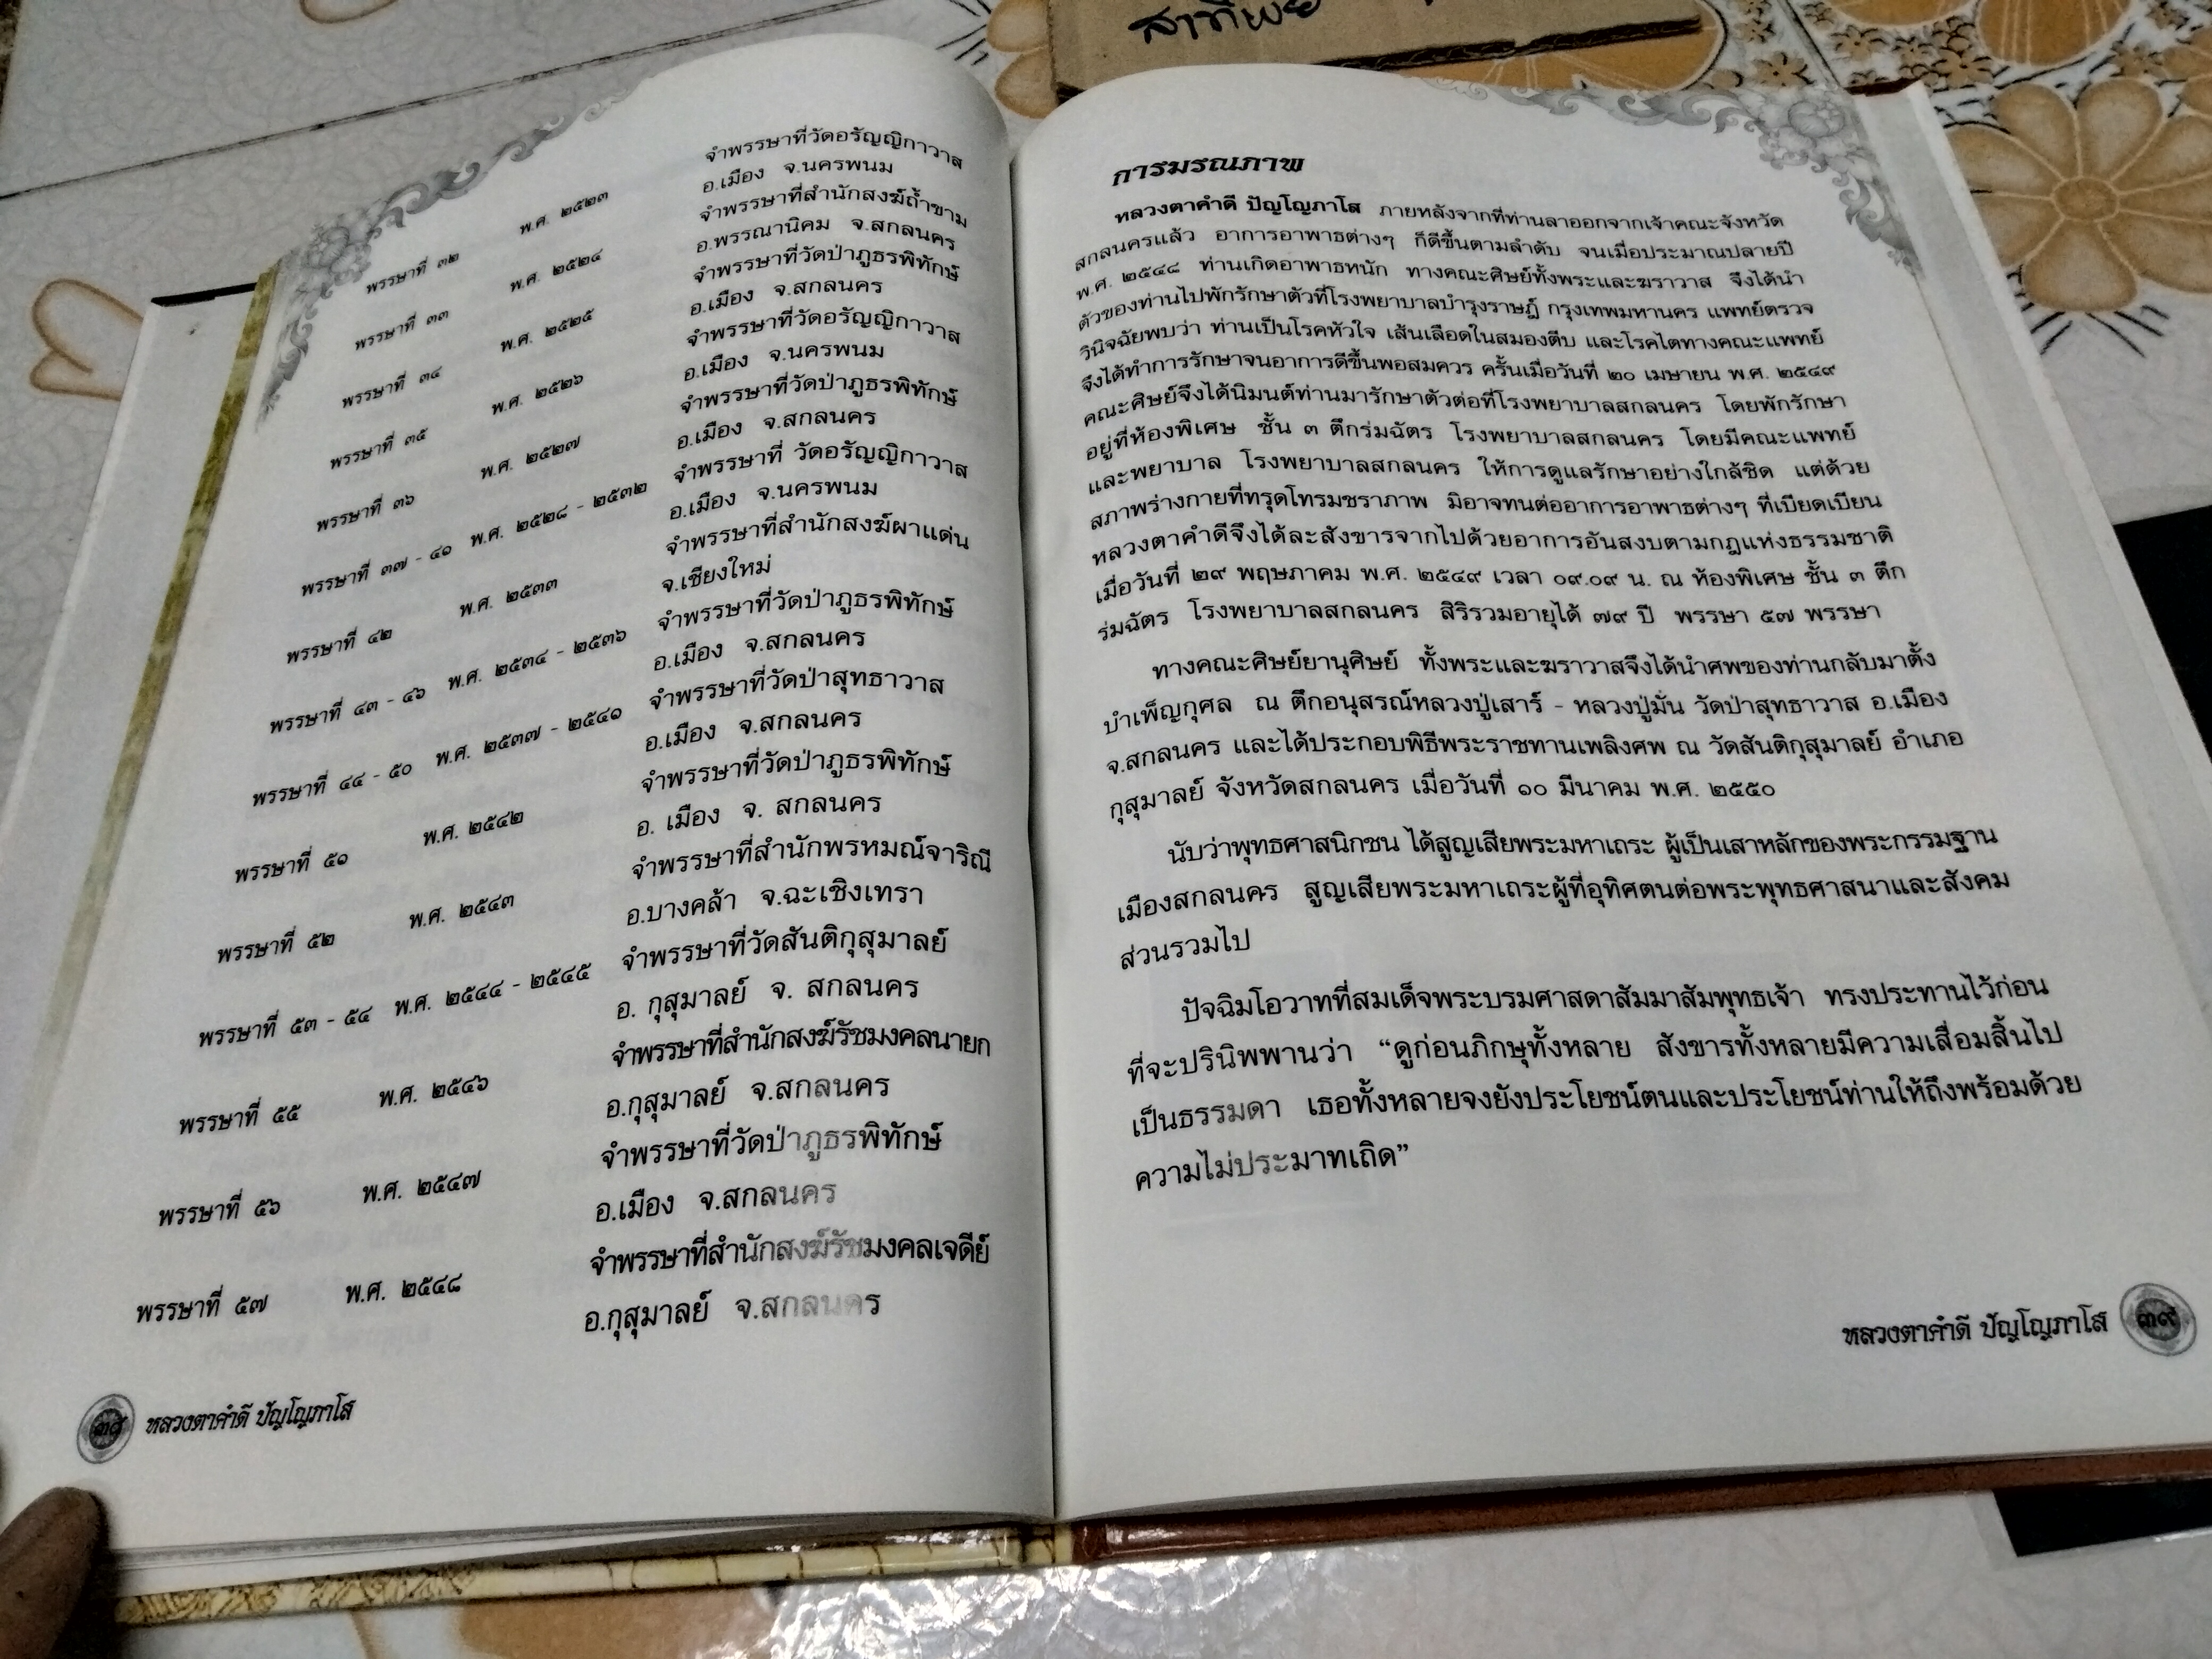 สาทิพย์
พรรษาที่ ๓๒ พ.ศ. ๒๕๒๓ จำพรรษาที่วัดอรัญญิกาวาส
อ.เมือง จ.นครพนม
พรรษาที่ ๓๓ พ.ศ. ๒๕๒๔ จำพรรษาที่สำนักสงฆ์ถ้ำขาม
อ.พรรณานิคม จ.สกลนคร
พรรษาที่ ๓๔ พ.ศ. ๒๕๒๕ จำพรรษาที่วัดป่าภูธรพิทักษ์
อ.เมือง จ.สกลนคร
พรรษาที่ ๓๕ พ.ศ. ๒๕๒๖ จำพรรษาที่วัดอรัญญิกาวาส
อ.เมือง จ.นครพนม
พรรษาที่ ๓๖ พ.ศ. ๒๕๒๗ จำพรรษาที่วัดป่าภูธรพิทักษ์
อ.เมือง จ.สกลนคร
พรรษาที่ ๓๗ - ๔๑ พ.ศ. ๒๕๒๘ - ๒๕๓๒ จำพรรษาที่ วัดอรัญญิกาวาส
อ.เมือง จ.นครพนม
พรรษาที่ ๔๒ พ.ศ. ๒๕๓๓ จำพรรษาที่สำนักสงฆ์ผาแด่น
จ.เชียงใหม่
พรรษาที่ ๔๓ - ๔๖ พ.ศ. ๒๕๓๔ - ๒๕๓๖ จำพรรษาที่วัดป่าภูธรพิทักษ์
อ.เมือง จ.สกลนคร
พรรษาที่ ๔๔ - ๕๐ พ.ศ. ๒๕๓๗ - ๒๕๔๑ จำพรรษาที่วัดป่าสุทธาวาส
อ.เมือง จ.สกลนคร
พรรษาที่ ๕๑ พ.ศ. ๒๕๔๒ จำพรรษาที่วัดป่าภูธรพิทักษ์
อ. เมือง จ. สกลนคร
พรรษาที่ ๕๒ พ.ศ. ๒๕๔๓ จำพรรษาที่สำนักพรหมณ์จาริณี
อ.บางคล้า จ.ฉะเชิงเทรา
พรรษาที่ ๕๓ - ๕๔ พ.ศ. ๒๕๔๔ - ๒๕๔๕ จำพรรษาที่วัดสันติกุสุมาลย์
อ. กุสุมาลย์ จ. สกลนคร
พรรษาที่ ๕๕ พ.ศ. ๒๕๔๖ จำพรรษาที่สำนักสงฆ์รัชมงคลนายก
อ.กุสุมาลย์ จ.สกลนคร
พรรษาที่ ๕๖ พ.ศ. ๒๕๔๗ จำพรรษาที่วัดป่าภูธรพิทักษ์
อ.เมือง จ.สกลนคร
พรรษาที่ ๕๗ พ.ศ. ๒๕๔๘ จำพรรษาที่สำนักสงฆ์รัชมงคลเจดีย์
อ.กุสุมาลย์ จ.สกลนคร
๓๘ หลวงตาคำดี ปัญโญภาโส
การมรณภาพ
หลวงตาคำดี ปัญโญภาโส ภายหลังจากที่ท่านลาออกจากเจ้าคณะจังหวัด
สกลนครแล้ว อาการอาพาธต่างๆ ก็ดีขึ้นตามลำดับ จนเมื่อประมาณปลายปี
พ.ศ. ๒๕๔๘ ท่านเกิดอาพาธหนัก ทางคณะศิษย์ทั้งพระและฆราวาส จึงได้นำ
ตัวของท่านไปพักรักษาตัวที่โรงพยาบาลบำรุงราษฎ์ กรุงเทพมหานคร แพทย์ตรวจ
วินิจฉัยพบว่า ท่านเป็นโรคหัวใจ เส้นเลือดในสมองตีบ และโรคไตทางคณะแพทย์
จึงได้ทำการรักษาจนอาการดีขึ้นพอสมควร ครั้นเมื่อวันที่ ๒๐ เมษายน พ.ศ. ๒๕๔๙
คณะศิษย์จึงได้นิมนต์ท่านมารักษาตัวต่อที่โรงพยาบาลสกลนคร โดยพักรักษา
อยู่ที่ห้องพิเศษ ชั้น ๓ ตึกร่มฉัตร โรงพยาบาลสกลนคร โดยมีคณะแพทย์
และพยาบาล โรงพยาบาลสกลนคร ให้การดูแลรักษาอย่างใกล้ชิด แต่ด้วย
สภาพร่างกายที่ทรุดโทรมชราภาพ มิอาจทนต่ออาการอาพาธต่างๆ ที่เบียดเบียน
หลวงตาคำดีจึงได้ละสังขารจากไปด้วยอาการอันสงบตามกฎแห่งธรรมชาติ
เมื่อวันที่ ๒๙ พฤษภาคม พ.ศ. ๒๕๔๙ เวลา ๐๙.๐๙ น. ณ ห้องพิเศษ ชั้น ๓ ตึก
ร่มฉัตร โรงพยาบาลสกลนคร สิริรวมอายุได้ ๗๙ ปี พรรษา ๕๗ พรรษา
ทางคณะศิษย์ยานุศิษย์ ทั้งพระและฆราวาสจึงได้นำศพของท่านกลับมาตั้ง
บำเพ็ญกุศล ณ ตึกอนุสรณ์หลวงปู่เสาร์ - หลวงปู่มั่น วัดป่าสุทธาวาส อ.เมือง
จ.สกลนคร และได้ประกอบพิธีพระราชทานเพลิงศพ ณ วัดสันติกุสุมาลย์ อำเภอ
กุสุมาลย์ จังหวัดสกลนคร เมื่อวันที่ ๑๐ มีนาคม พ.ศ. ๒๕๕๐
นับว่าพุทธศาสนิกชน ได้สูญเสียพระมหาเถระ ผู้เป็นเสาหลักของพระกรรมฐาน
เมืองสกลนคร สูญเสียพระมหาเถระผู้ที่อุทิศตนต่อพระพุทธศาสนาและสังคม
ส่วนรวมไป
ปัจฉิมโอวาทที่สมเด็จพระบรมศาสดาสัมมาสัมพุทธเจ้า ทรงประทานไว้ก่อน
ที่จะปรินิพพานว่า “ดูก่อนภิกษุทั้งหลาย สังขารทั้งหลายมีความเสื่อมสิ้นไป
เป็นธรรมดา เธอทั้งหลายจงยังประโยชน์ตนและประโยชน์ท่านให้ถึงพร้อมด้วย
ความไม่ประมาทเถิด”
หลวงตาคำดี ปัญโญภาโส ๓๙